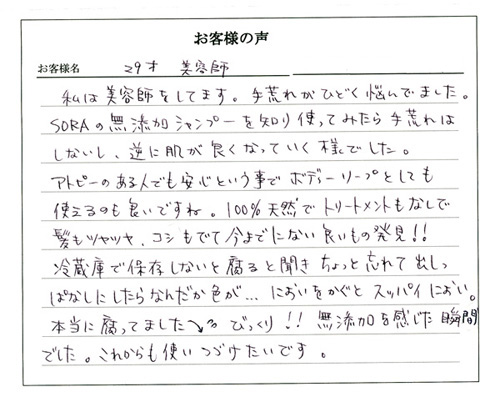 お客様の声
お客様名 29才 美容師
私は美容師をしてます。手荒れがひどく悩んでました。
SORAの無添加シャンプーを知り使ってみたら手荒れは
しないし、逆に肌が良くなっていく様でした。
アトピーのある人でも安心という事でボディーソープとしても
使えるのも良いですね。100%天然でトリートメントもなしで
髪もツヤツヤ、コシもでて今までにない良いもの発見!!
冷蔵庫で保存しないと腐ると聞きちょっと忘れて出しっ
ぱなしにしたらなんだか色が…においをかぐとスッパイにおい。
本当に腐ってました びっくり!! 無添加を感じた瞬間
でした。これからも使いつづけたいです。